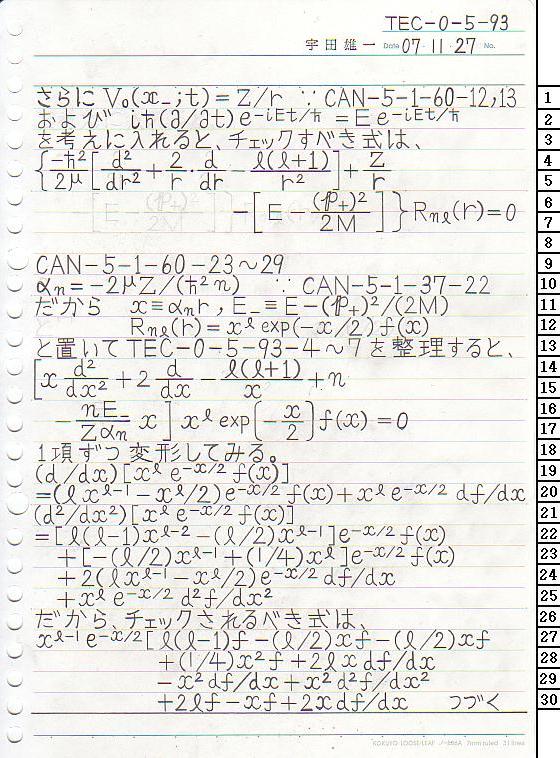 TEC-0-5-93
宇田雄一 Date 07・11・27 No.
さらに V₀(x₋;t)=Z/r ∵ CAN-5-1-60-12,13
および iℏ(∂/∂t)e^{-iEt/ℏ}=Ee^{-iEt/ℏ}
を考えに入れると、チェックすべき式は、
{(-ℏ²/2μ)[d²/dr²+(2/r)・d/dr-ℓ(ℓ+1)/r²]+Z/r
-[E-(𝐩₊)²/2M]}R_{nℓ}(r)=0
CAN-5-1-60-23〜29
αn=-2μZ/(ℏ²n) ∵ CAN-5-1-37-22
だから x≡αn r, E₋≡E-(𝐩₊)²/(2M)
R_{nℓ}(r)=x^ℓ exp(-x/2)f(x)
と置いてTEC-0-5-93-4〜7を整理すると、
[x d²/dx²+2 d/dx-ℓ(ℓ+1)/x+n
-(nE₋/Zαn)x]x^ℓ exp(-x/2)f(x)=0
1項ずつ変形してみる。
(d/dx)[x^ℓ e^{-x/2}f(x)]
=(ℓx^{ℓ-1}-x^ℓ/2)e^{-x/2}f(x)+x^ℓ e^{-x/2}df/dx
(d²/dx²)[x^ℓ e^{-x/2}f(x)]
=[ℓ(ℓ-1)x^{ℓ-2}-(ℓ/2)x^{ℓ-1}]e^{-x/2}f(x)
+[-(ℓ/2)x^{ℓ-1}+(1/4)x^ℓ]e^{-x/2}f(x)
+2(ℓx^{ℓ-1}-x^ℓ/2)e^{-x/2}df/dx
+x^ℓ e^{-x/2}d²f/dx²
だから、チェックされるべき式は、
x^{ℓ-1}e^{-x/2}[ℓ(ℓ-1)f-(ℓ/2)xf-(ℓ/2)xf
+(1/4)x²f+2ℓx df/dx
-x²df/dx+x²d²f/dx²
+2ℓf-xf+2x df/dx つづく
1
2
3
4
5
6
7
8
9
10
11
12
13
14
15
16
17
18
19
20
21
22
23
24
25
26
27
28
29
30
KOKUYO LOOSE-LEAF 7mm ruled 31 lines